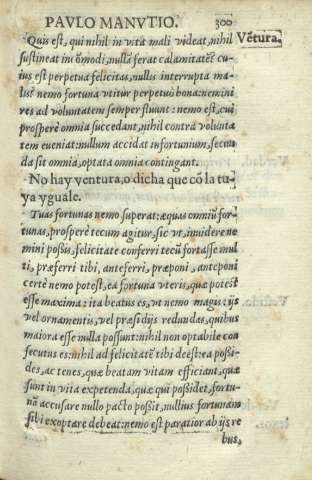 PAVLO MANVTIO. 300
Quis est, qui nihil in vita mali videat, nihil
Vẽtura.
sustineat incõmodi, nulla ferat calamitatẽ? cu-
ius est perpetua felicitas, nullis interrupta ma-
lis? nemo fortuna vtitur perpetuò bona: nemini
res ad voluntatem semper fluunt: nemo est, cui
prosperè omnia succedant, nihil contrà volunta
tem eueniat: nullum accidat infortunium, secun
da sint omnia, optata omnia contingant.
No hay ventura, o dicha que cõ la tu-
ya yguale.
Tuas fortunas nemo superat: æquas omniũ for-
tunas, prosperè tecum agitur, sic vt, inuidere ne
mini possis, felicitate conferri tecũ fortasse mul
ti, præferri tibi, anteferri, præponi, anteponi
certè nemo potest, ea fortuna vteris, quæ potest
esse maxima: ita beatus es, vt nemo magis: ijs
vel ornamentis, vel præsidijs redundas, quibus
maiora esse nulla possunt: nihil non optabile con
secutus es: nihil ad felicitatẽ tibi deest: ea possi-
des, ac tenes, quæ beatam vitam efficiant, quæ
sunt in vita expetenda, quæ qui possidet, fortu-
nã accusare nullo pacto possit, nullius fortunam
sibi exoptare debeat: nemo est paratior ab ijs re
bus,